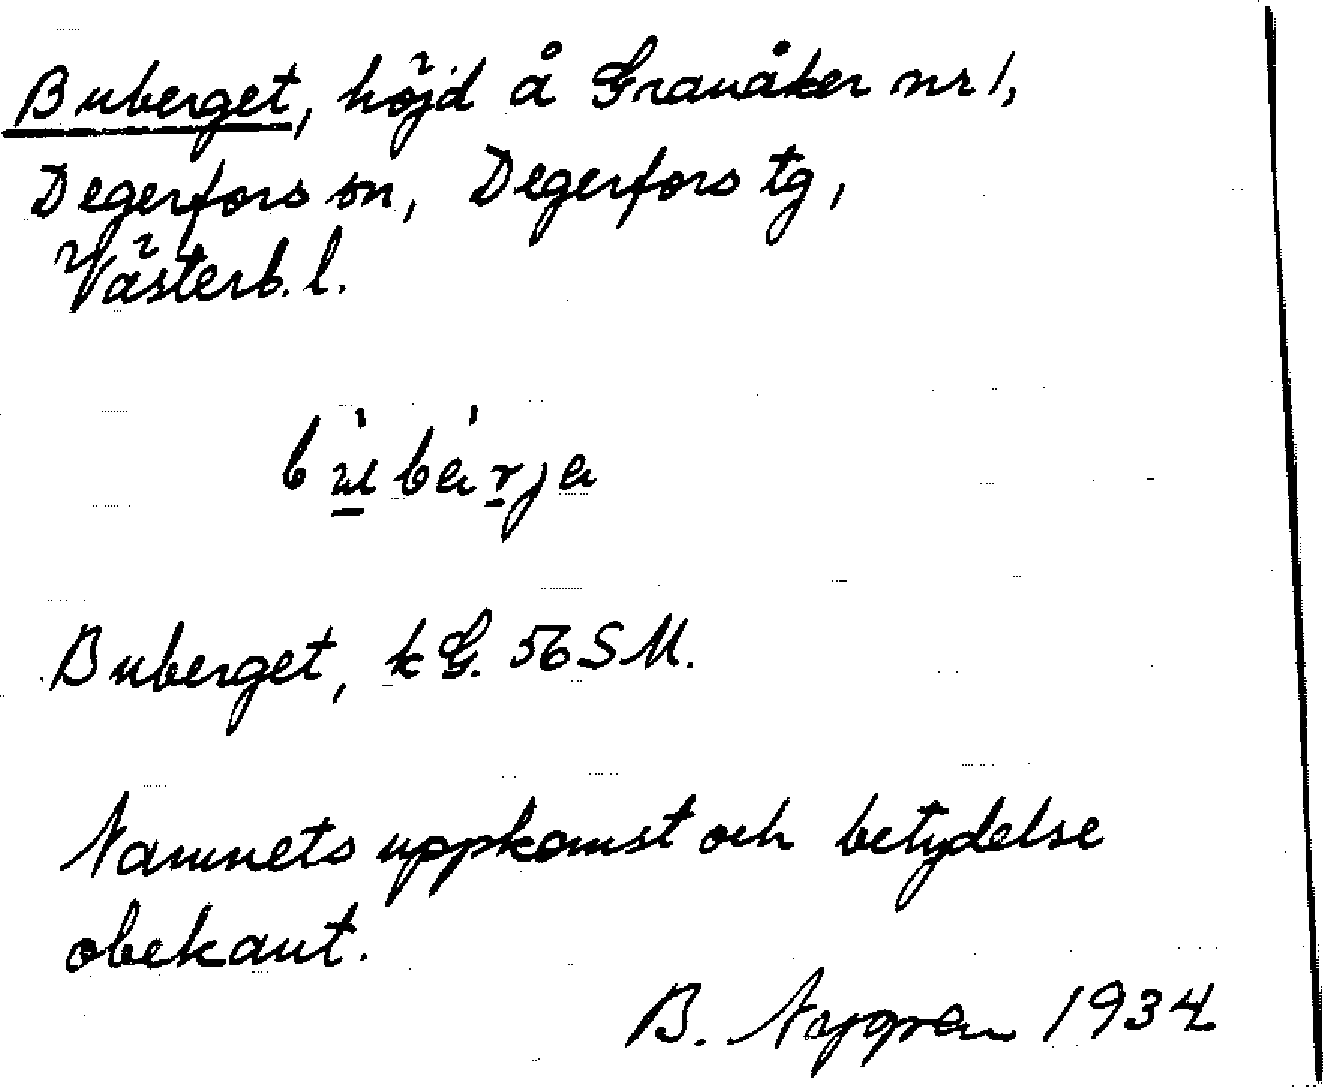 Buberget, höjd å Granåker nr 1,
Degerfors sn, Degerfors tg,
Västerb. l.
bu̠bärja
Buberget, k G. 56 S M.
Namnets uppkomst och betydelse
obekant.
B. Nygren 1934